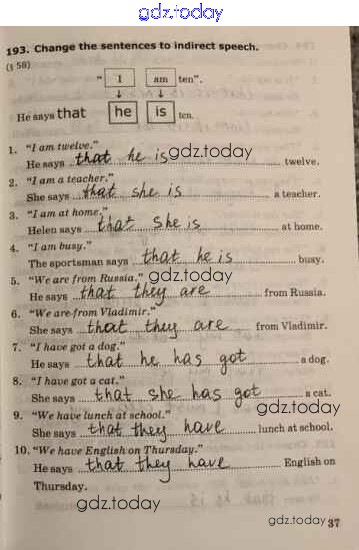 gdz.today
193. Change the sentences to indirect speech.
(§ 58)
" I am ten".
↓ ↓
He says that he is ten.
1. "I am twelve."
He says that he is gdz.today twelve.
2. "I am a teacher."
She says that she is a teacher.
3. "I am at home."
Helen says that she is at home.
4. "I am busy."
The sportsman says that he is busy.
gdz.today
5. "We are from Russia."
He says that they are from Russia.
6. "We are from Vladimir."
She says that they are from Vladimir.
gdz.today
7. "I have got a dog."
He says that he has got a dog.
8. "I have got a cat."
She says that she has got a cat.
gdz.today
9. "We have lunch at school."
She says that they have lunch at school.
10. "We have English on Thursday."
He says that they have English on
Thursday.
gdz.today
gdz.today 37